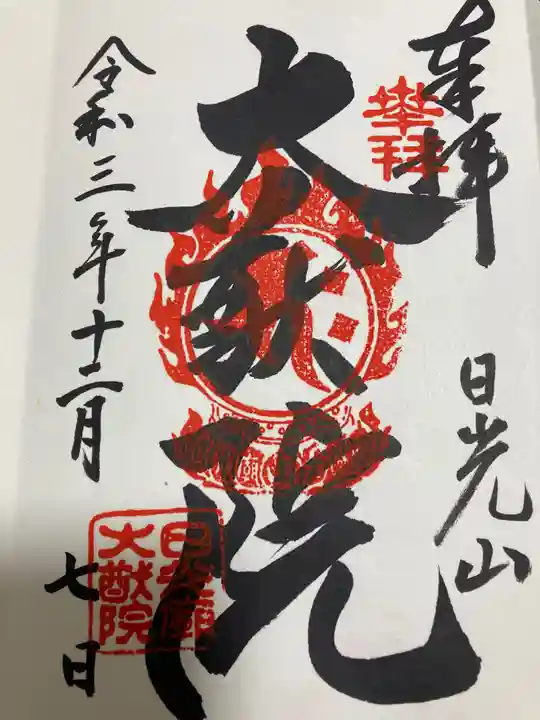 奉拝
奉拝
日光山
大猷院
日光廟
大猷院
令和三年十二月
七日